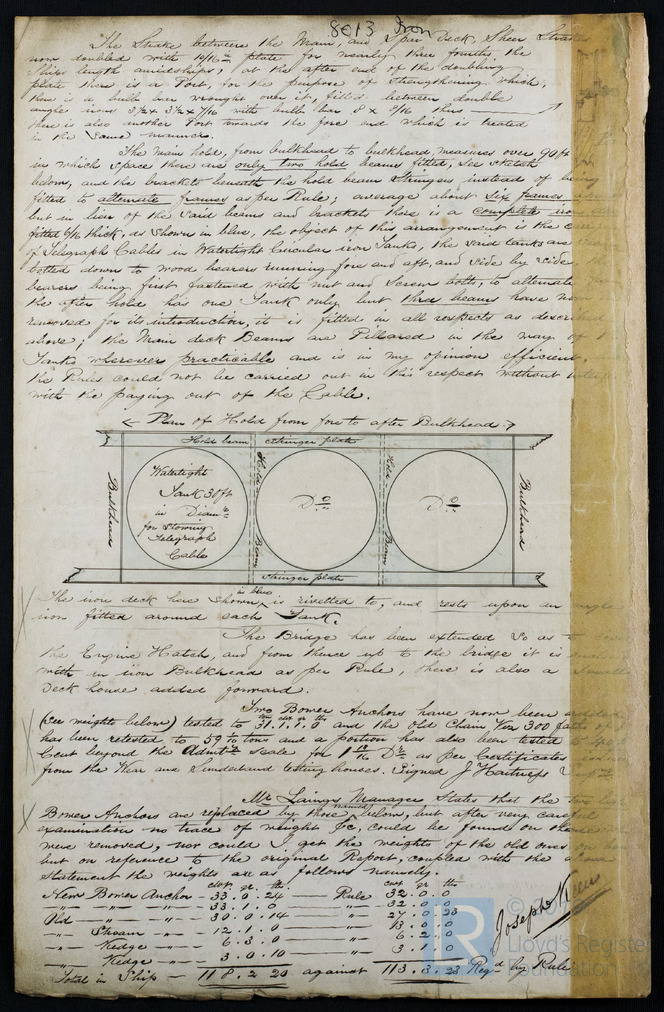 8013 Iron
The Strake between the Main, and Spar Deck, Sheer Strakes
now doubled with 10/16 in plate for nearly three fourths the
Ships length amidships; at the after end of the doubling
plate there is a Port, for the purpose of strengthening which,
there is a bulb iron wrought over it, fitted between double
angle irons 3½ x 3½ x 7/16 with bulb bar 8 x 9/16 thus
there is also another Port towards the fore end which is treated
in the same manner.
The main hold, from bulkhead to bulkhead measures over 90 ft
in which space there are only two hold beams fitted, see sketch
below, and the brackets beneath the hold beam Stringers instead of being
fitted to alternate frames as per Rule; average about six frames
but in lieu of the said beams and brackets there is a complete iron
fitted 6/16 thick, as shown in blue, the object of this arrangement is the
of Telegraph Cables in Watertight Circular iron Tanks, the said tanks are
bolted down to wood bearers running fore and aft, and side by side, the
bearers being first fastened with nut and screw bolts, to alternate
the after hold has one Tank only but three beams have now
removed for its introduction, it is fitted in all respects as described
above; the Main deck Beams are Pillared in the way of
Tanks wherever practicable and is in my opinion efficient,
the Rules could not be carried out in this respect without
with the paying out of the Cable.
Plan of Hold from fore to after Bulkhead
Hold beam stringer plate
Bulkhead
Watertight
Tank 30 ft
in Diamr
for Stowing
Telegraph
Cable
Hold Beam
Do
Hold Beam
Do
Bulkhead
Stringer plate
The iron deck here shown in blue is rivetted to, and rests upon an angle
iron fitted around each Tank.
The Bridge has been extended so as to
the Engine Hatch, and from thence up to the bridge it is
with an iron Bulkhead as per Rule, there is also a small
Deck house added forward.
Two Bower Anchors have now been
(see weights below) tested to 31.1.1.0 and the old Chain 300
has been retested to 59 tons and a portion has also been tested to
Cent beyond the Admty scale for 1 Dr as per Certificates
from the Wear and Sunderland testing houses. Signed J Hartness
Mr Laings Manager States that the two
Bower Anchors are replaced by those named below, but after very careful
examination no trace of weight &c, could be found on those
were removed, nor could I get the weights of the old ones
but on reference to the original Report, coupled with the above
statement the weights are as follows namely.
cwt qr lbs cwt qr lbs
New Bower Anchor - 33.0.24 — Rule 32.0.0
" " " - 33.1.0 — " 32.0.0
Old " " - 30.0.14 — " 27.0.23
" Stream " - 12.1.0 — " 13.0.0
" Kedge " - 6.3.0 — " 6.2.0
" Kedge " - 3.0.10 — " 3.1.0
Total in Ship - 118.2.20 against 113.3.23 Reqd by Rule
Joseph Keen
© Lloyd's Register
Foundation